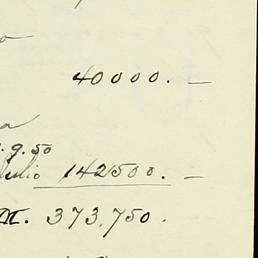 o
40000. —
a
.9.50
Julio 142500. —
M. 373,750.